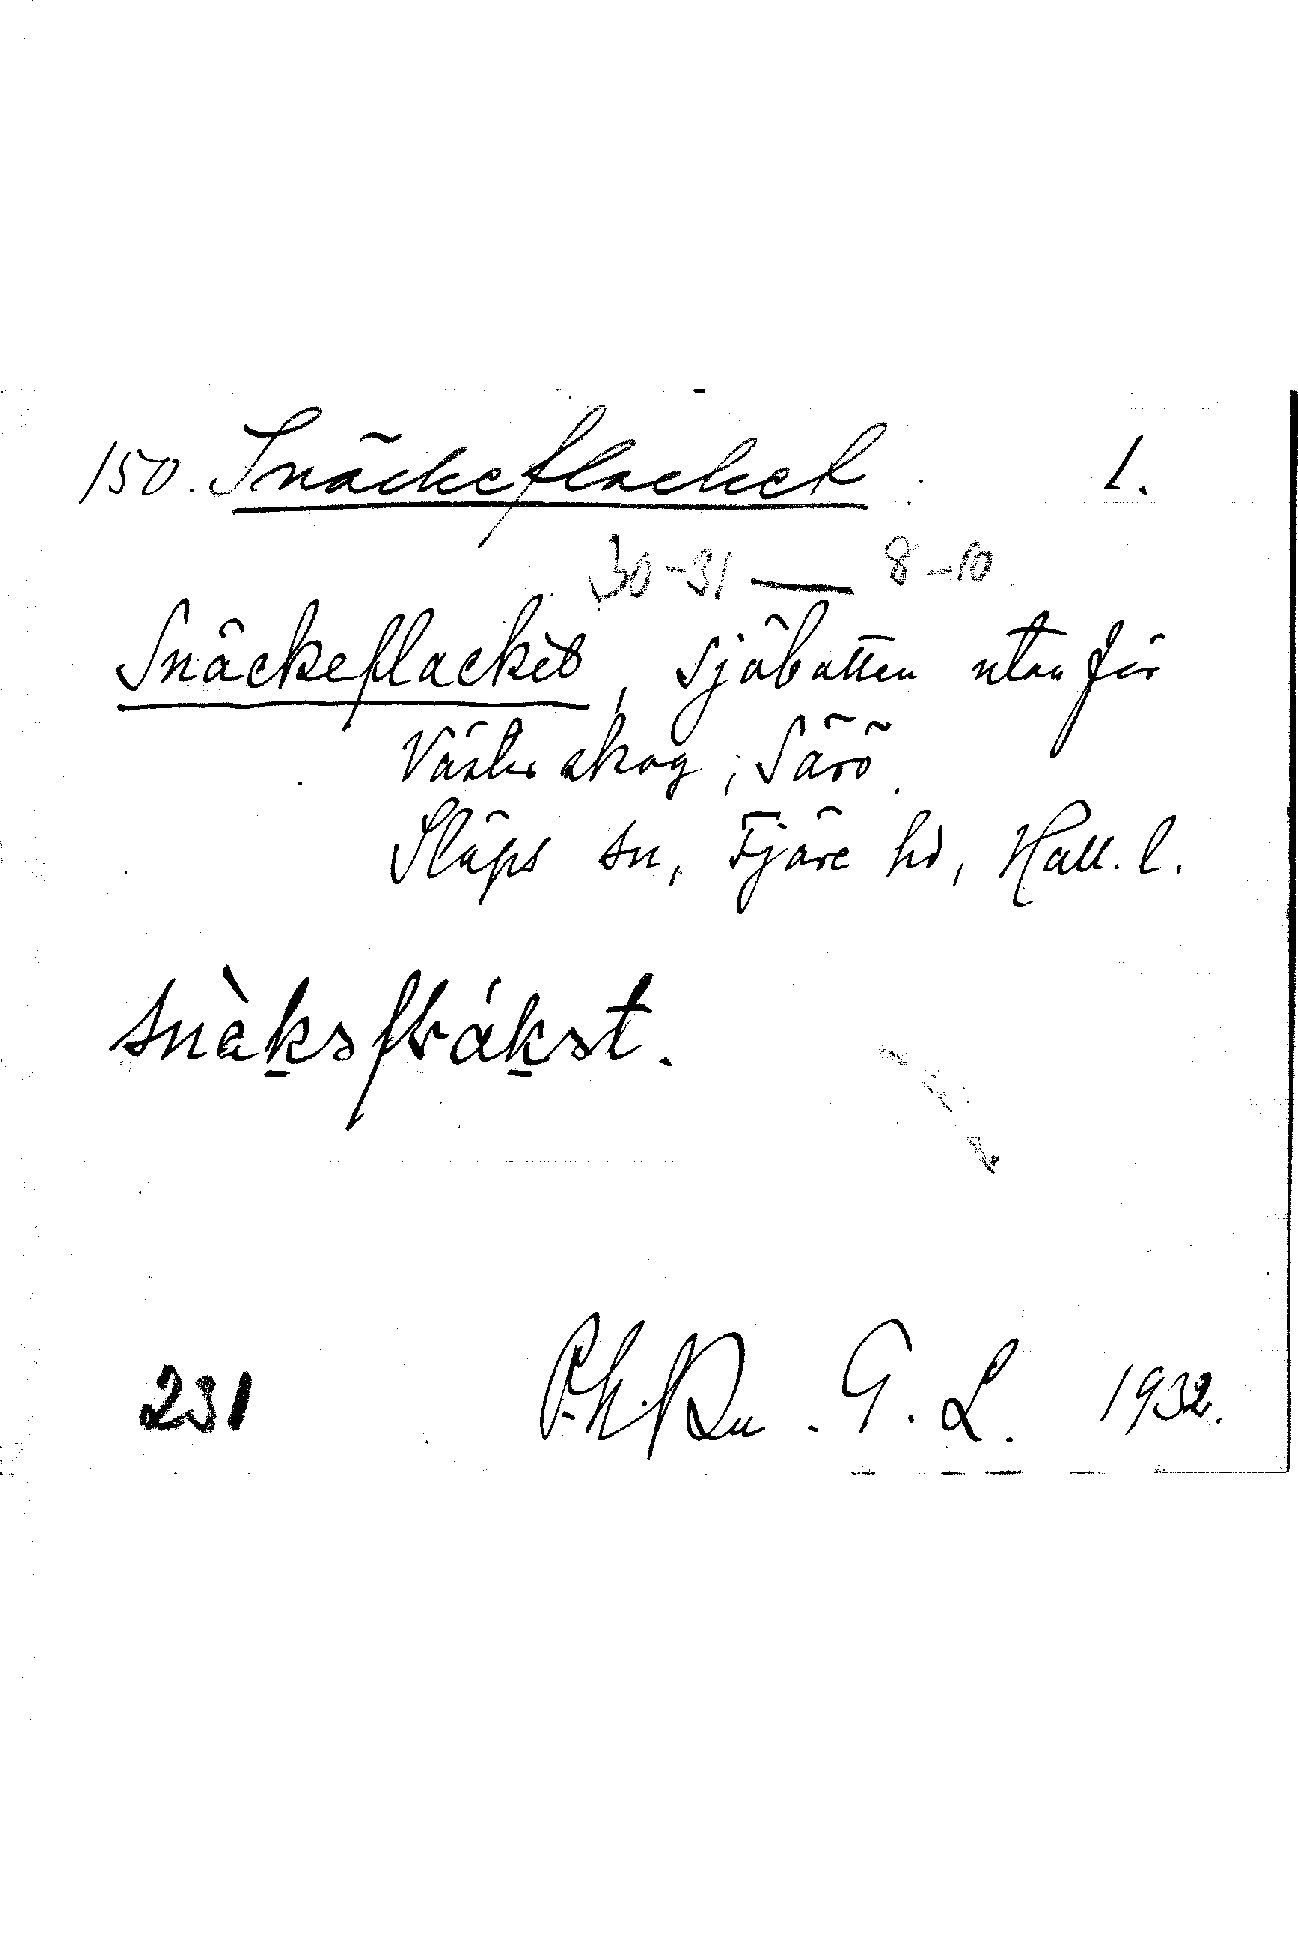 150. Snäckeflacket 1.
30-31 — 8-10
Snäckeflacket, sjöbotten utanför
Västerskog, Särö.
Släps sn, Fjäre hd, Hall. l.
231 G. L. 1932.